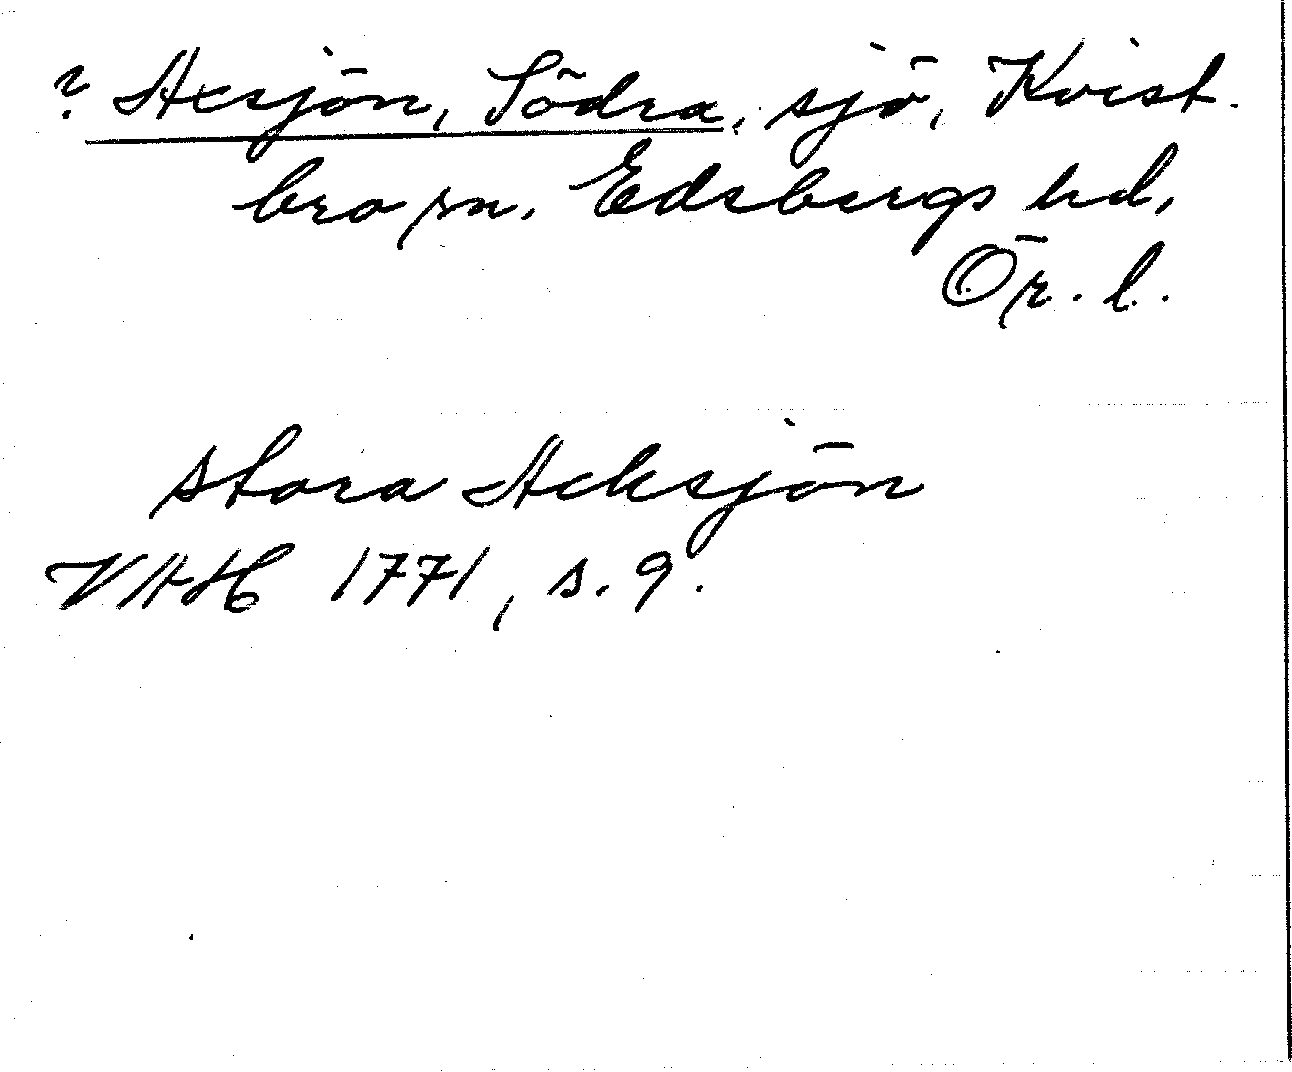 ? Axsjön, Södra, sjö, Kvist-
bro sn. Edsbergs hd,
Ör. l.
stora Acksjön
VAH 1771, s. 9.